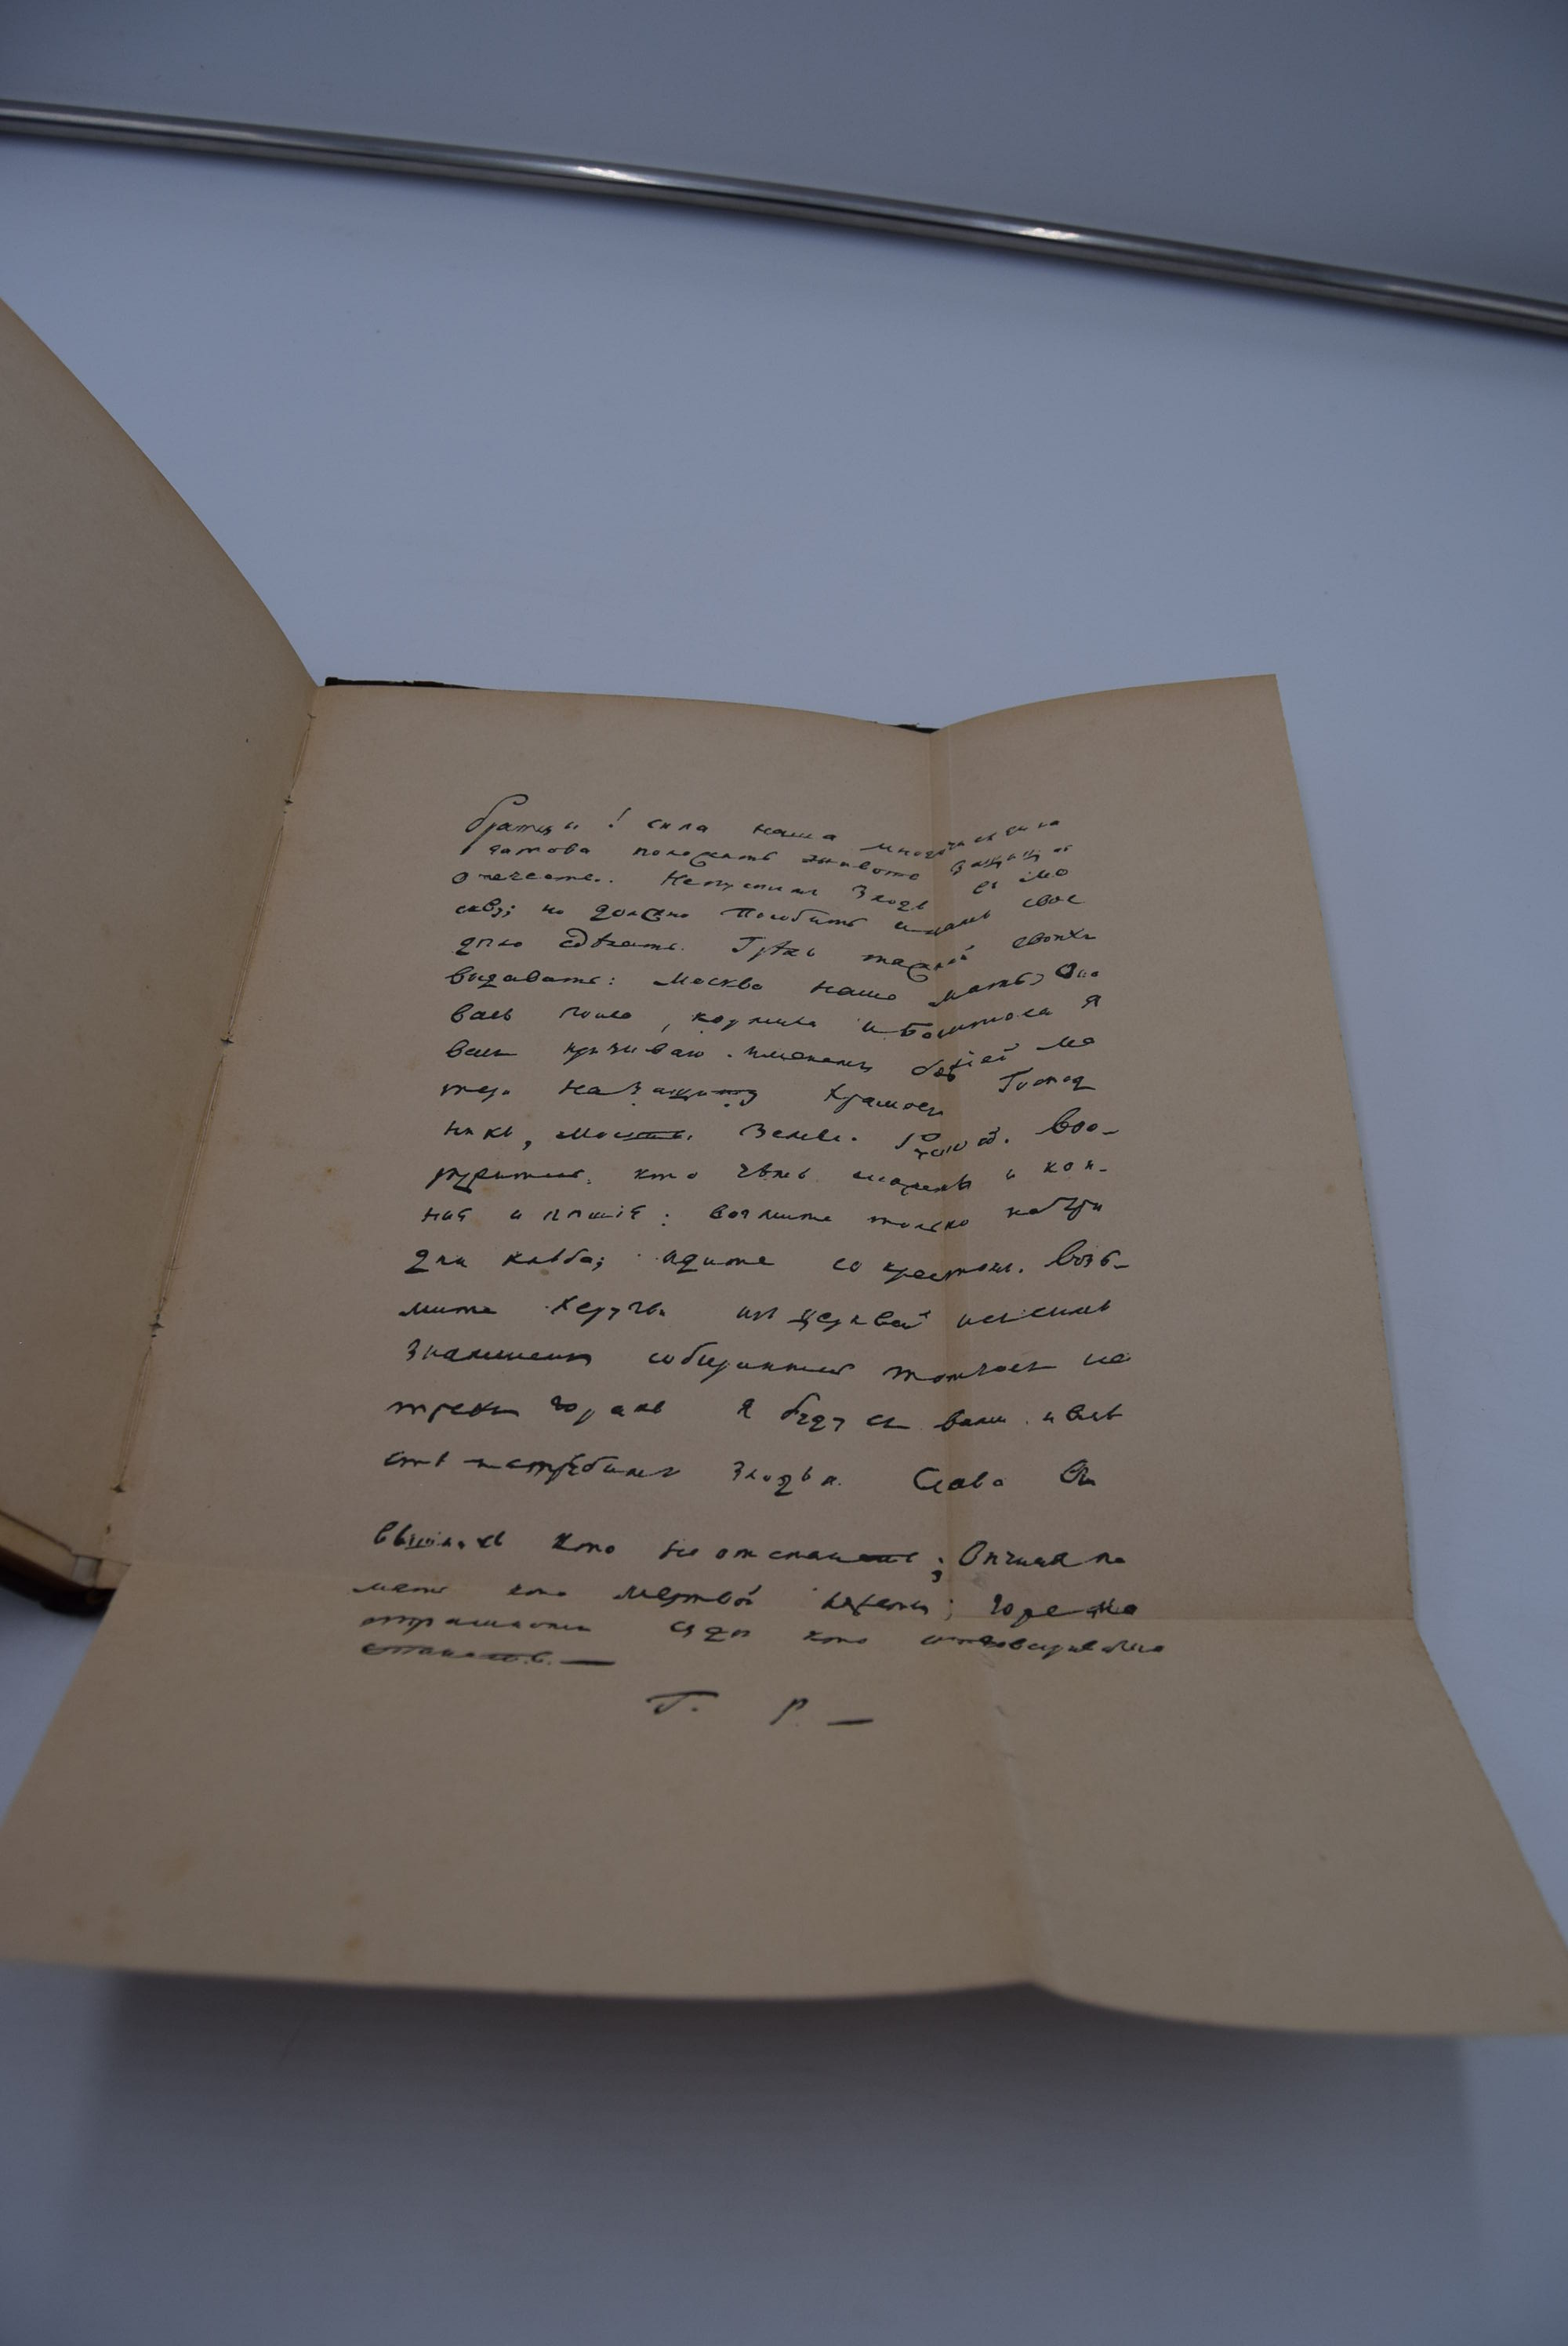 братцы! сила наша многочисленна
готова положить животъ защищая
отечество. Непустимъ Злодѣя въ Мо
скву; но должно Пособить и намъ свое
дѣло сдѣлать. Грѣхъ тяжкой своихъ
выдавать: Москва наша мать; Она
васъ поила, кормила и Богатила Я
васъ призываю имянемъ божіей Ма
тери на Защиту Храмовъ Господ
нихъ, Москвы, Земли Руской. Воо-
ружитесь, кто чѣмъ можетъ и кон-
ныя и пѣшія: возмите только на три
дни хлѣба; идите со крестомъ. Возь-
мите Хоругви изъ церквей и съ симъ
Знаменемъ собирайтесь тотчасъ на
трехъ горахъ Я буду съ вами и вмѣ
стѣ истребимъ Злодѣя. Слава Въ
вышнихъ кто не отстанетъ; Вѣчная па
мять кто мертвой ляжетъ; горе на
страшномъ судѣ кто отговариваться
станетъ. —
Г. Р —